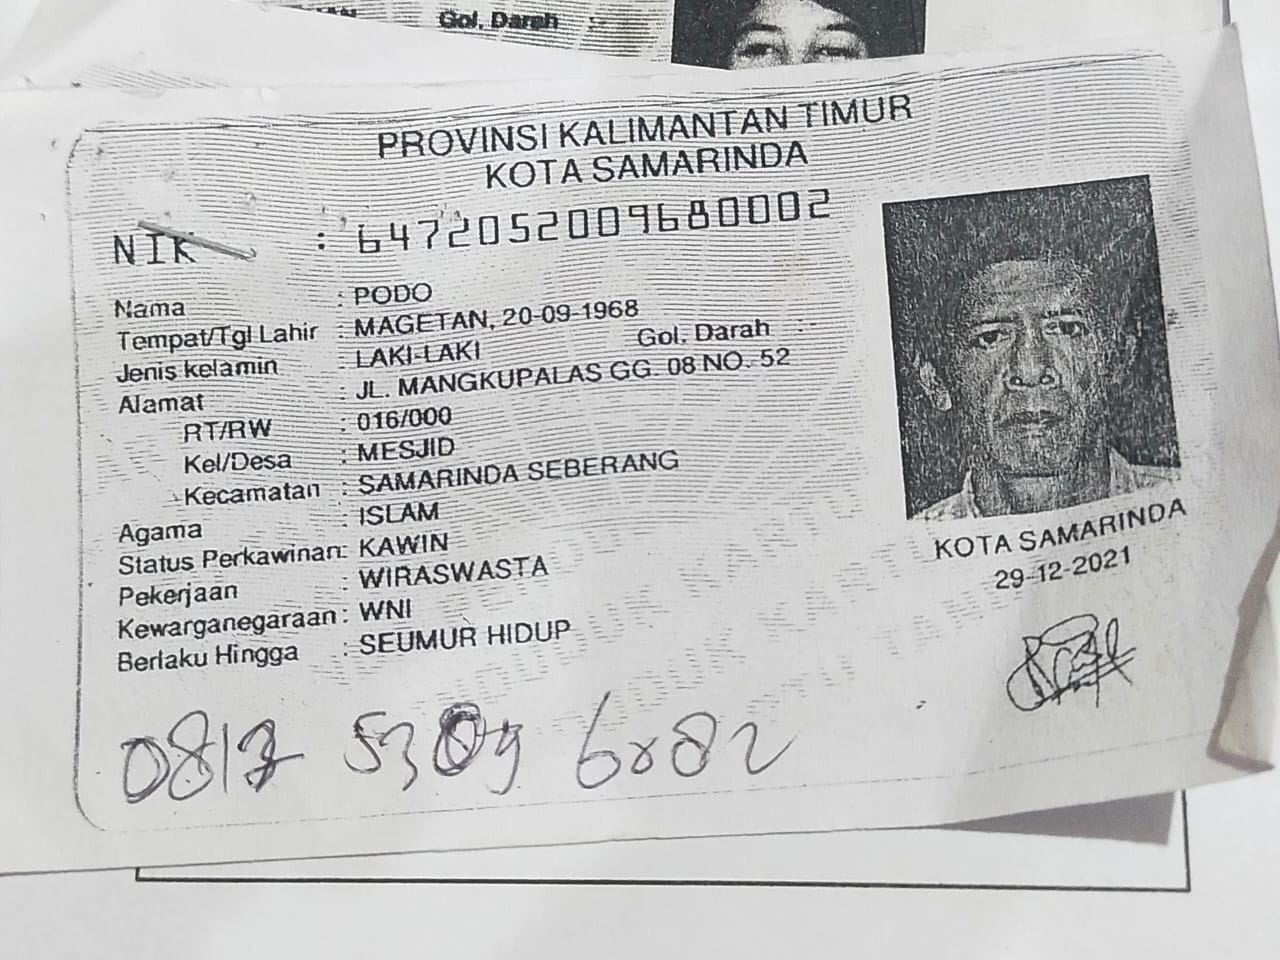 Gol. Darah :
PROVINSI KALIMANTAN TIMUR
KOTA SAMARINDA
NIK : 6472052009680002
Nama : PODO
Tempat/Tgl Lahir : MAGETAN, 20-09-1968
Jenis kelamin : LAKI-LAKI Gol. Darah :
Alamat : JL. MANGKUPALAS GG. 08 NO. 52
RT/RW : 016/000
Kel/Desa : MESJID
Kecamatan : SAMARINDA SEBERANG
Agama : ISLAM
Status Perkawinan: KAWIN
Pekerjaan : WIRASWASTA
Kewarganegaraan : WNI
Berlaku Hingga : SEUMUR HIDUP
KOTA SAMARINDA
29-12-2021